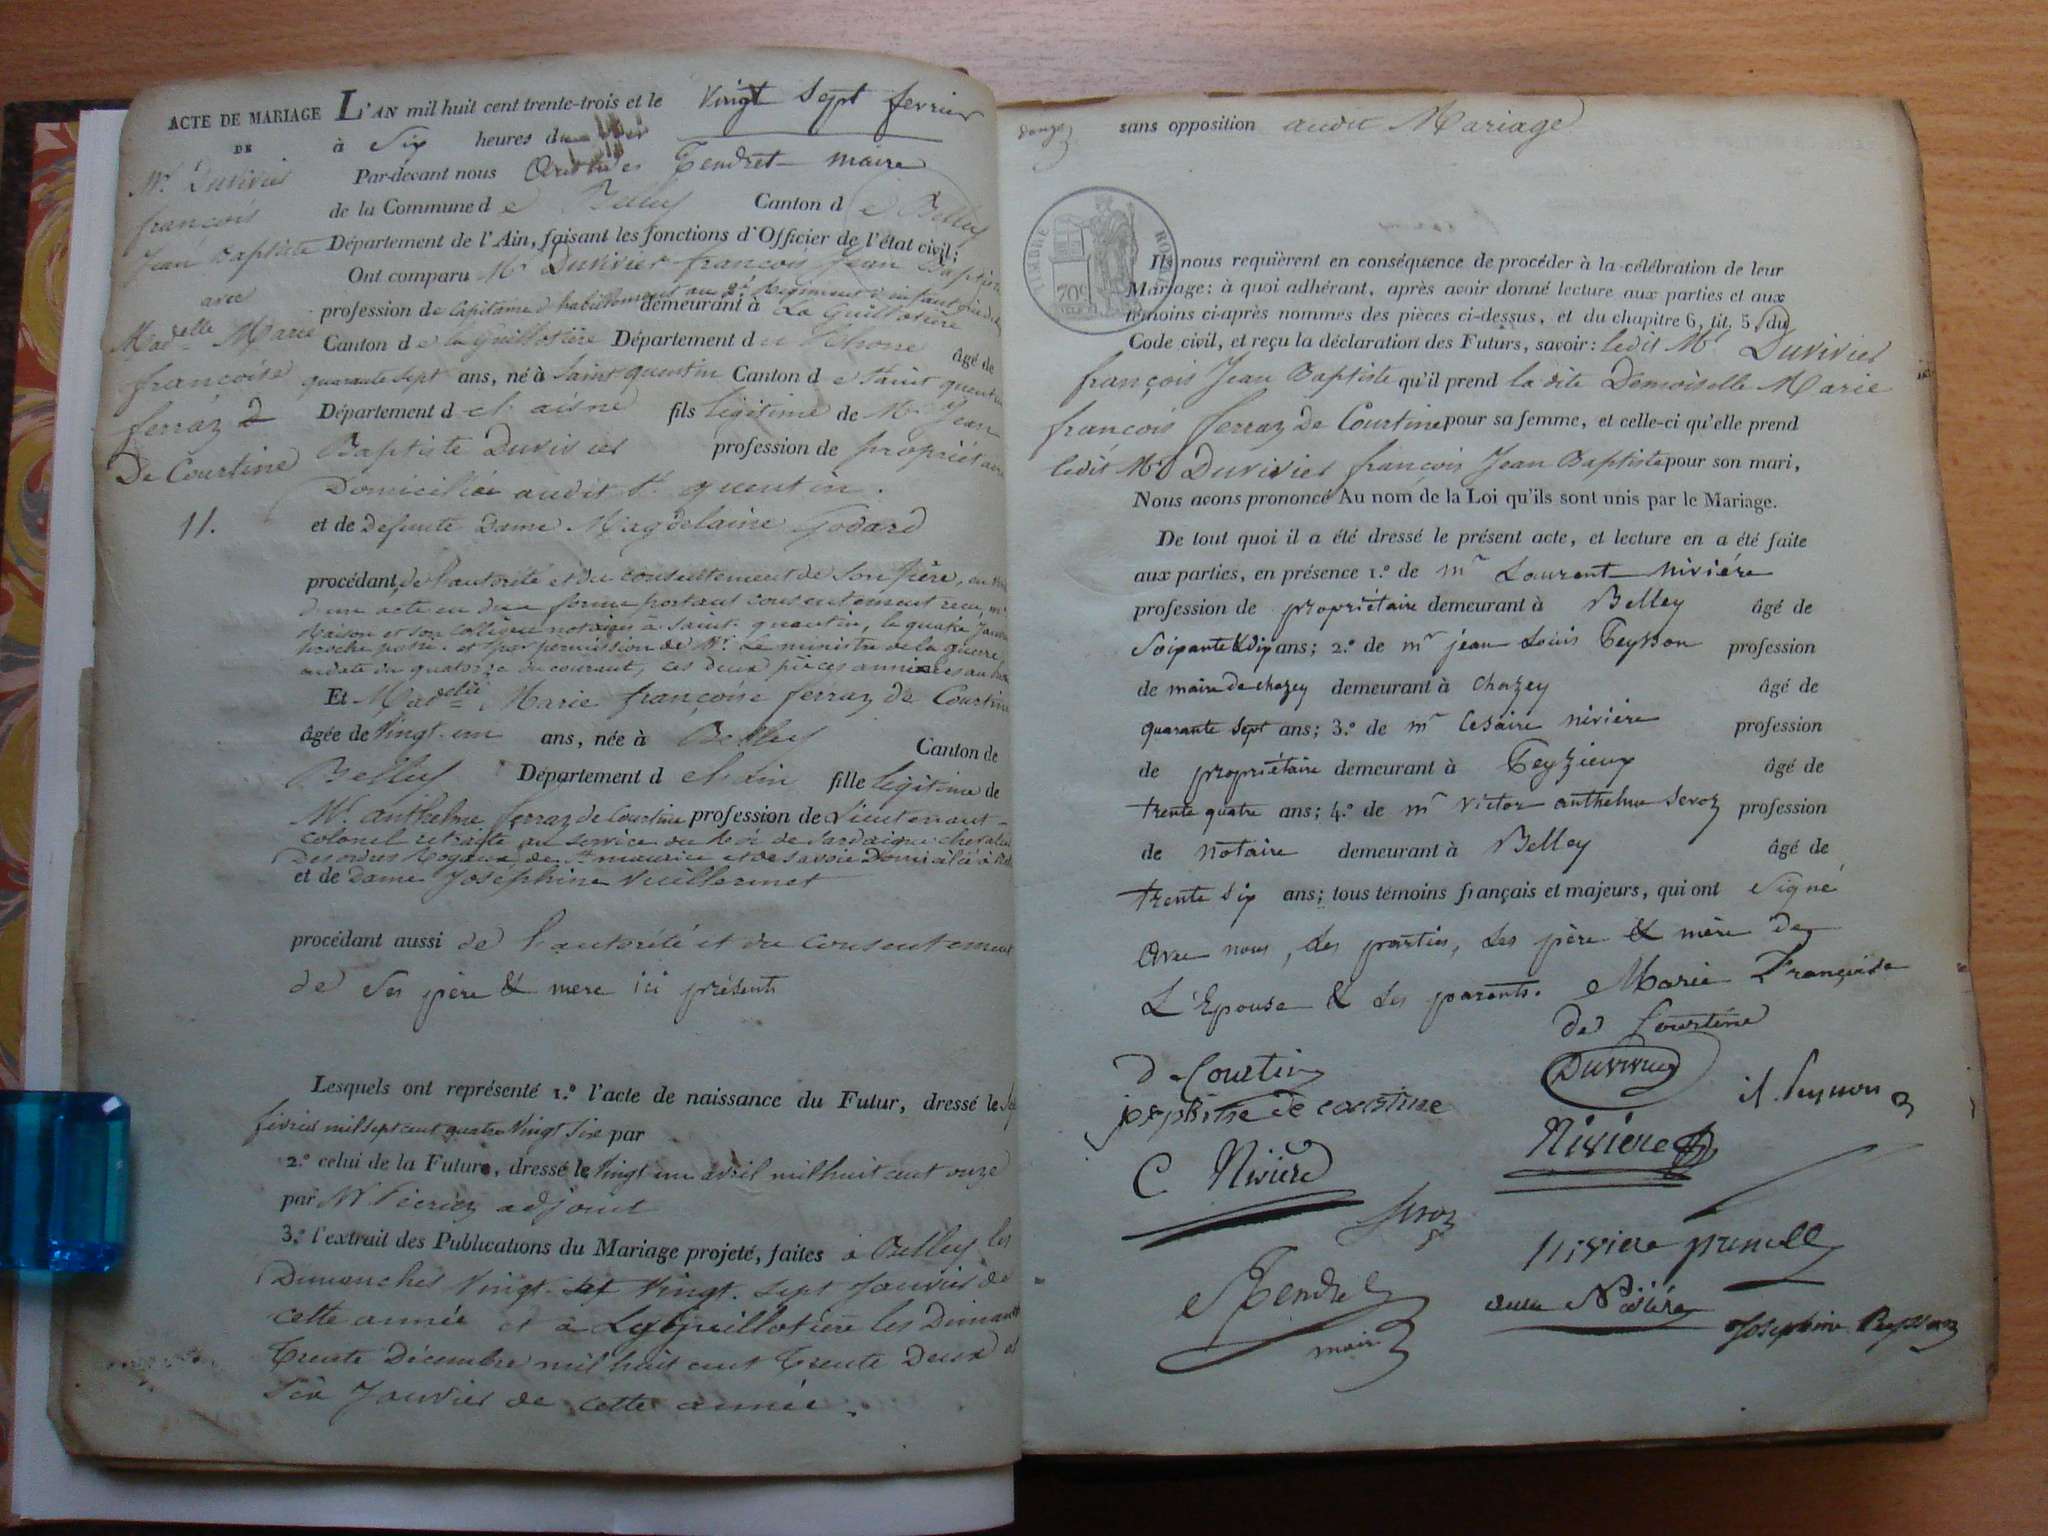 ACTE DE MARIAGE
DE
Mr. Duvivier
françois
Jean Baptiste
avec
Madelle Marie
françoise
ferraz
De Courtine
11.
L'AN mil huit cent trente-trois et le vingt sept fevrier
à Six heures du
Par-devant nous Tendret maire
de la Commune de Belley Canton de Belley
Département de l'Ain, faisant les fonctions d'Officier de l'état civil;
Ont comparu Mr Duvivier françois Jean Baptiste
profession de Capitaine d'habillement au 2e Regiment d'infanterie demeurant à La Guillotière
Canton de la Guillotière Département du Rhone âgé de
quarante sept ans, né à Saint quentin Canton de Saint quentin
Département de l'aisne fils légitime de Mr Jean
Baptiste Duvivier profession de propriétaire
Domicilié audit St. quentin.
et de defunte Dame Magdelaine Godard
procédant, de l'autorité et du consentement de Son père, en
d'un acte en due forme portant consentement reçu
et son Collègue notaires à Saint quentin, le quatre Janvier
proche passé. et par permission de Mr. Le ministre de la guerre
en date du quatorze du courant, ces deux pièces annexées au
Et Madelle Marie françoise ferraz de Courtine
âgée de Vingt-un ans, née à Belley Canton de
Belley Département de l'ain fille légitime de
Mr. anthelme ferraz de Courtine profession de Lieutenant-
colonel retraité au service du Roi de Sardaigne chevalier
Des ordres Royaux de St maurice et de Savoie Domicilié à
et de Dame Joséphine Vuillermet
procédant aussi de l'autorité et du consentement
de Ses père & mere ici présents
Lesquels ont représenté 1.º l'acte de naissance du Futur, dressé le
février mil sept cent quatre Vingt Six par
2.º celui de la Future, dressé le Vingt un avril mil huit cent onze
par Mr adjoint
3.º l'extrait des Publications du Mariage projeté, faites à Belley les
Dimanches Vingt et Vingt-Sept Janvier de
cette année et à La Guillotière les Dimanches
Trente Décembre mil huit cent Trente Deux et
Six Janvier de cette année.
sans opposition audit Mariage
TIMBRE ROYAL
70c
Ils nous requièrent en conséquence de procéder à la célébration de leur
Mariage: à quoi adhérant, après avoir donné lecture aux parties et aux
témoins ci-après nommés des pièces ci-dessus, et du chapitre 6, tit. 5, du
Code civil, et reçu la déclaration des Futurs, savoir: ledit Mr Duvivier
françois Jean Baptiste qu'il prend la dite Demoiselle Marie
francois ferraz de Courtine pour sa femme, et celle-ci qu'elle prend
ledit Mr Duvivier françois Jean Baptiste pour son mari,
Nous avons prononcé Au nom de la Loi qu'ils sont unis par le Mariage.
De tout quoi il a été dressé le présent acte, et lecture en a été faite
aux parties, en présence 1.º de mr Laurent nivière
profession de propriétaire demeurant à Belley âgé de
Soixante & dix ans; 2.º de mr jean Louis Teysson profession
de maire de chazey demeurant à chazey âgé de
quarante sept ans; 3.º de mr Cesaire nivière profession
de propriétaire demeurant à Teyzieux âgé de
trente quatre ans; 4.º de mr Victor anthelme Sevoz profession
de notaire demeurant à Belley âgé de
trente six ans; tous témoins français et majeurs, qui ont Signé
Avec nous, Les parties, Les père & mère de
L'Epouse & Les parents. Marie Françoise
de Courtine
De Courtine
Duvivier
josephine de courtine
C Nivière
Nivière
Sevoz
Nivière prunelle
Tendret
maire
Nivière
Joséphine